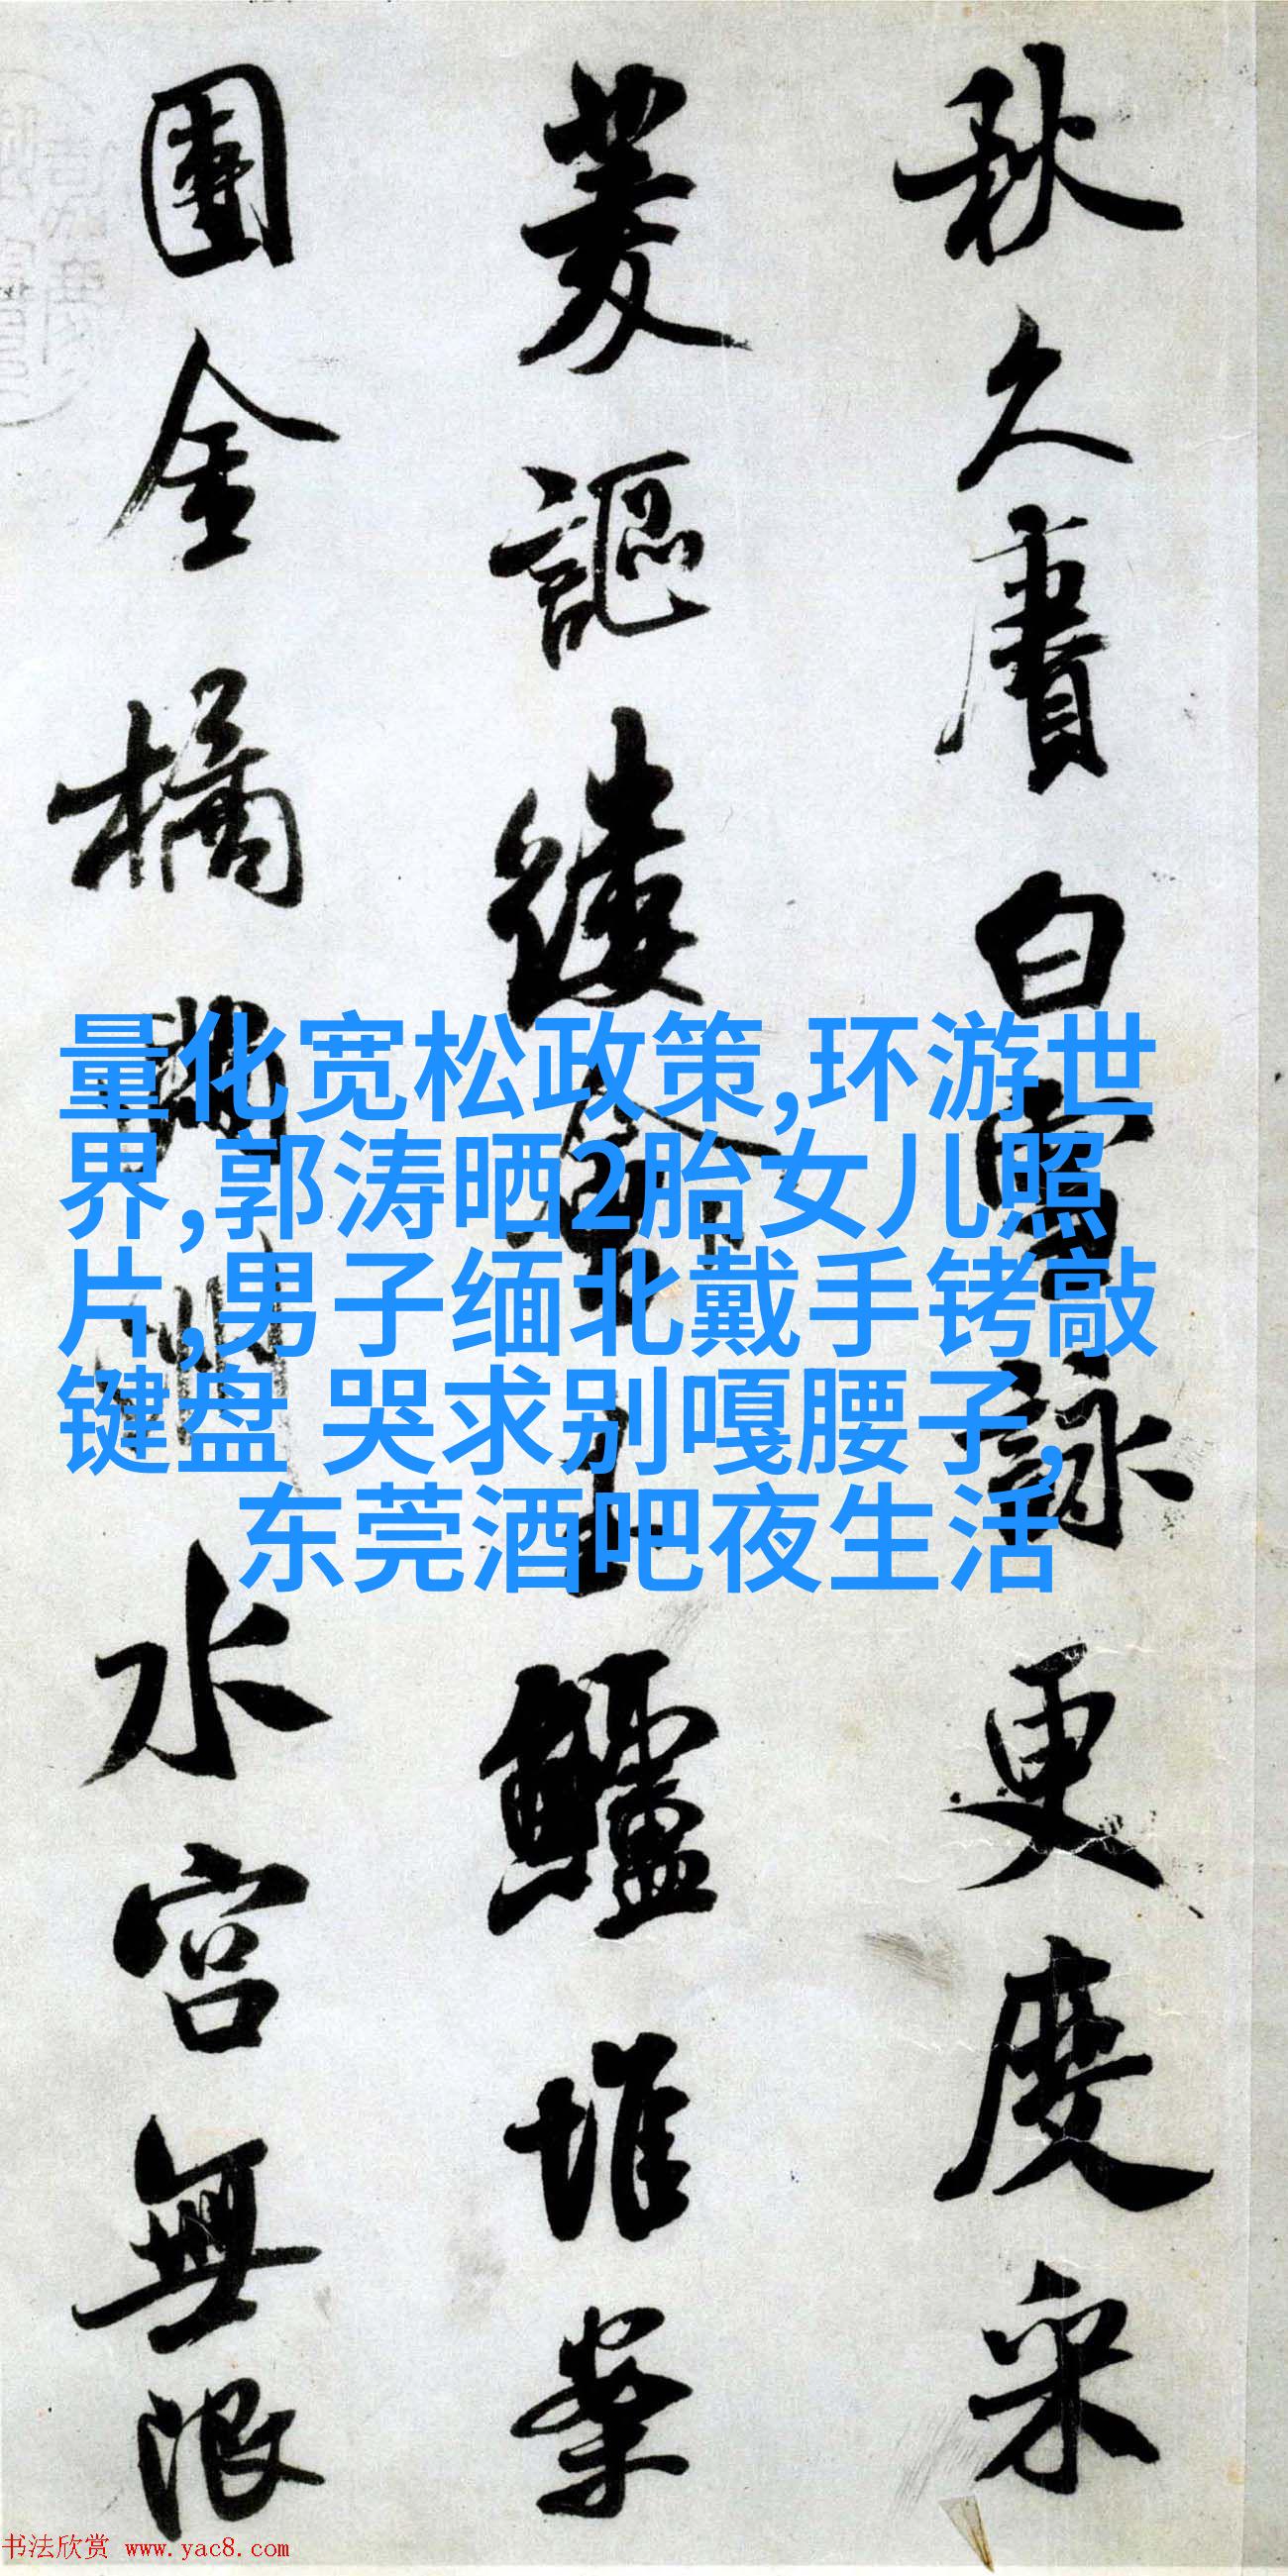 秋久賡白雪詠更度采
菱謳縷會玉鱸堆案
團金橘滿洲水宮無限
量化宽松政策,环游世
界,郭涛晒2胎女儿照
片,男子缅北戴手铐敲
键盘 哭求别嘎腰子,
东莞酒吧夜生活
书法欣赏 www.yac8.com